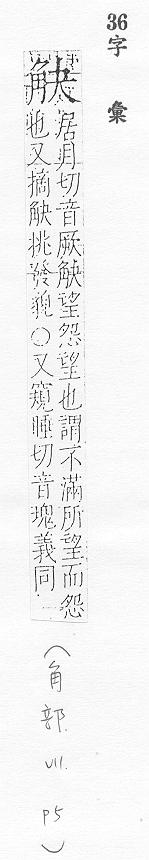 36
字彙
觖居月切音厥觖望怨望也謂不滿所望而怨
也又摘觖挑發貌○又窺睡切音瑰義同
(角部. VII. P5)